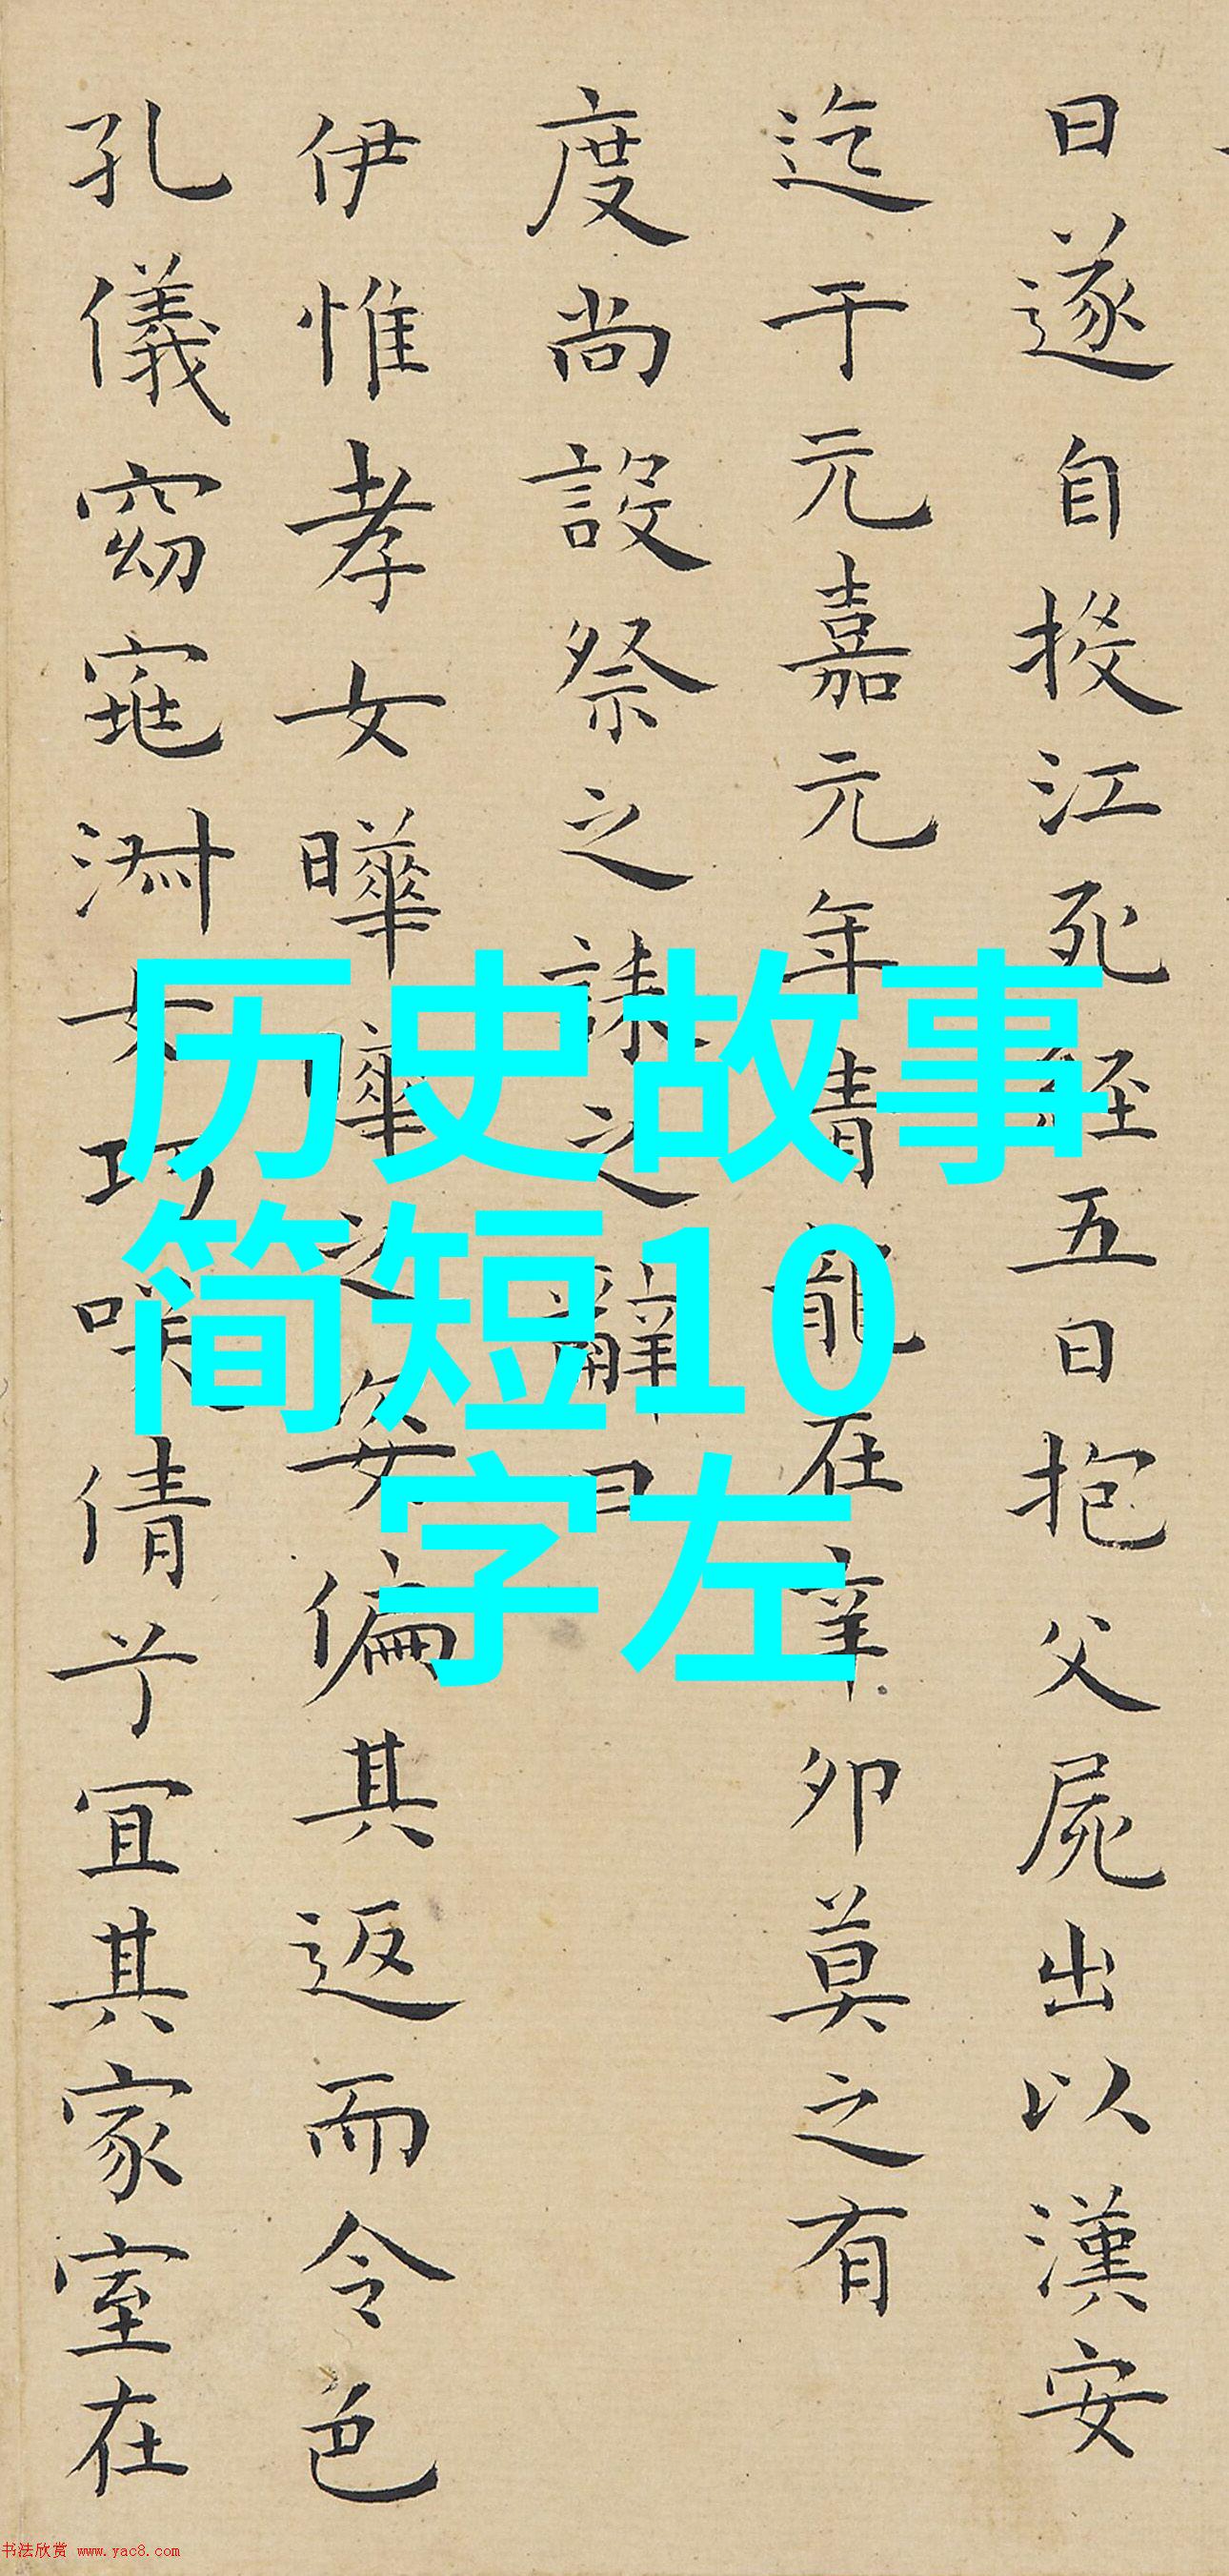 日遂自投江死經五日抱父屍出以漢安
迄于元嘉元年青龍在辛卯莫之有
度尚設祭之誄之辭曰
伊惟孝女曄曄之姿偏其返而令色
孔儀窈窕淑女巧笑倩兮宜其家室在
历史故事
简短10
字左
书法欣赏 www.yac8.com